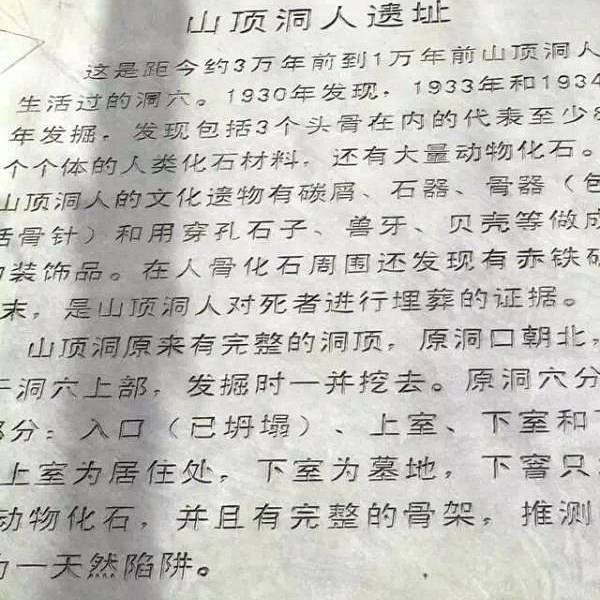 山顶洞人遗址
这是距今约3万年前到1万年前山顶洞人
生活过的洞穴。1930年发现，1933年和1934
年发掘，发现包括3个头骨在内的代表至少8
个个体的人类化石材料，还有大量动物化石。
山顶洞人的文化遗物有碳屑、石器、骨器（包
括骨针）和用穿孔石子、兽牙、贝壳等做成
的装饰品。在人骨化石周围还发现有赤铁矿
末，是山顶洞人对死者进行埋葬的证据。
山顶洞原来有完整的洞顶，原洞口朝北，
于洞穴上部，发掘时一并挖去。原洞穴分
部分：入口（已坍塌）、上室、下室和下
上室为居住处，下室为墓地，下窨只
动物化石，并且有完整的骨架，推测
为一天然陷阱。